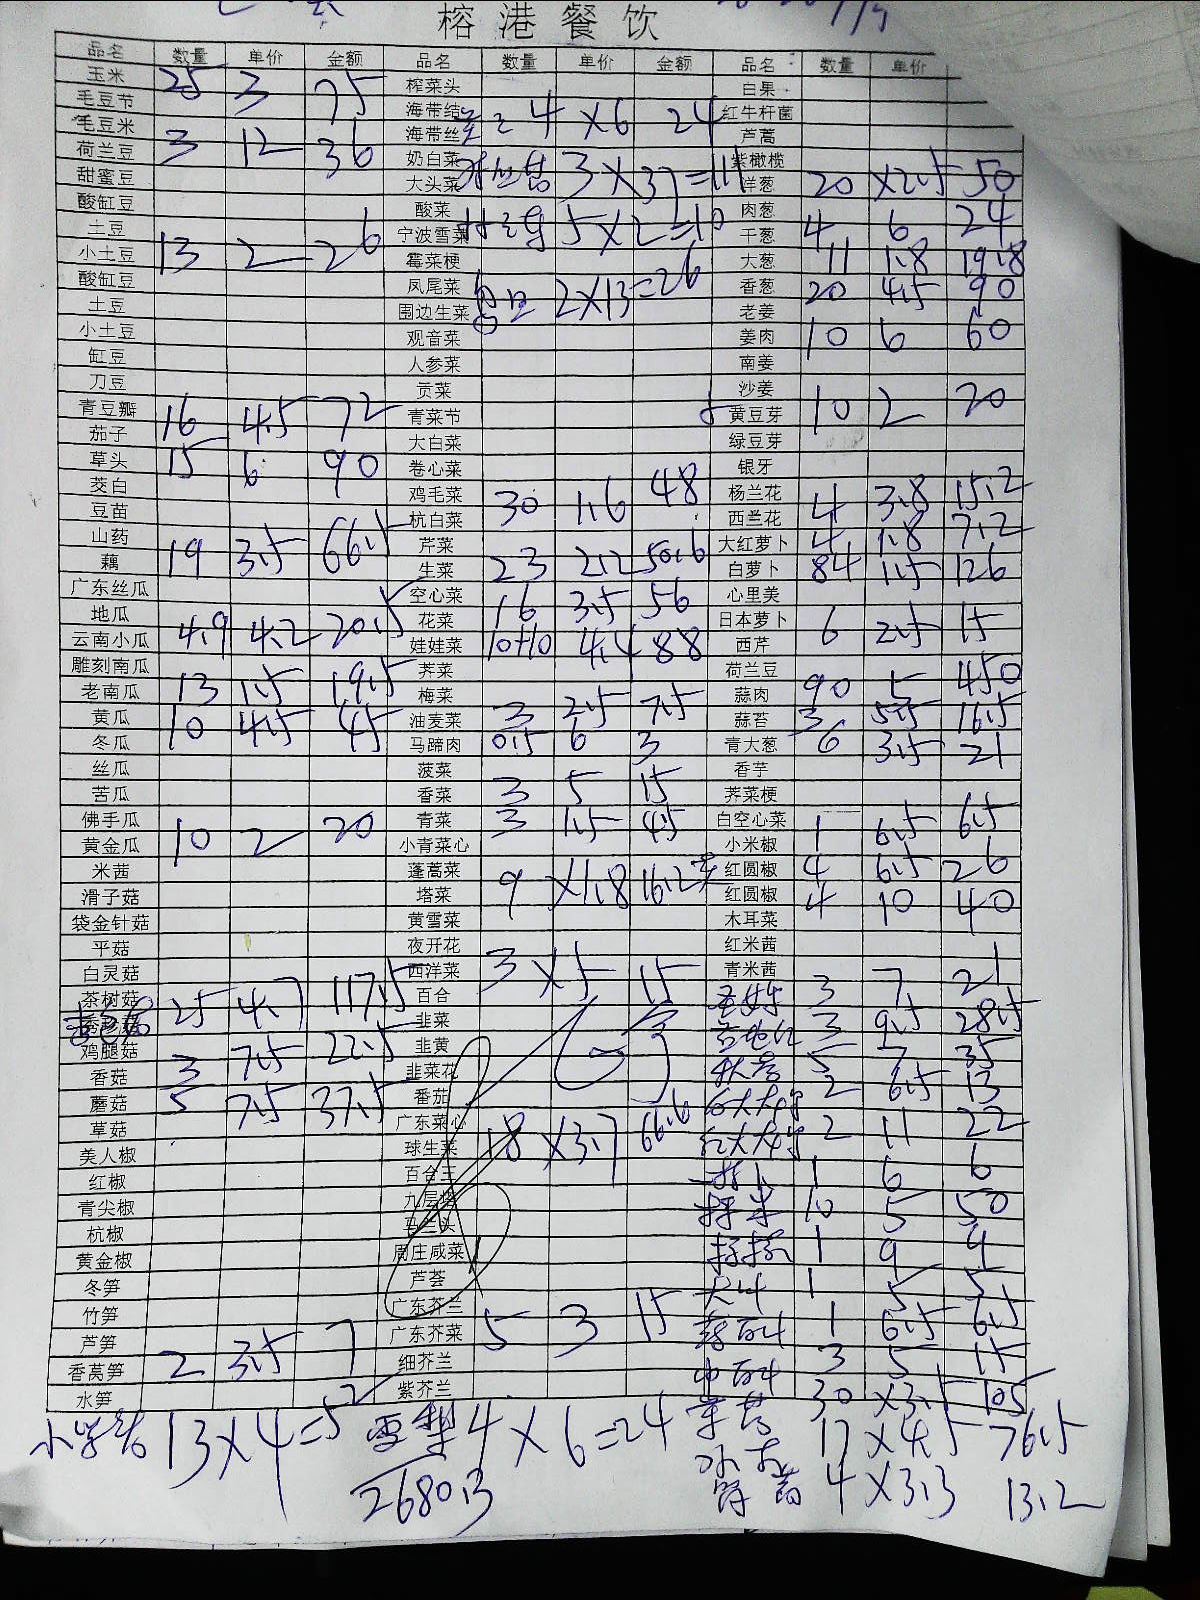 榕港餐饮
品名 数量 单价 金额 品名 数量 单价 金额 品名 数量 单价
玉米 25 3 75 榨菜头 白果
毛豆节 海带结 4 X6 24 红牛杆菌
毛豆米 3 12 36 海带丝 芦蒿
荷兰豆 奶白菜 3 X 37 =111 紫橄榄
甜蜜豆 大头菜 洋葱 20 X2.5 50
酸缸豆 酸菜 5 X 2 =10 肉葱
土豆 13 2 26 宁波雪菜 干葱 4 6 24
小土豆 霉菜梗 大葱 11 1.8 19.8
酸缸豆 凤尾菜 2X13=26 香葱 20 4.5 90
土豆 围边生菜 老姜
小土豆 观音菜 姜肉 10 6 60
缸豆 人参菜 南姜
刀豆 贡菜 沙姜
青豆瓣 16 4.5 72 青菜节 黄豆芽 10 2 20
茄子 大白菜 绿豆芽
草头 15 6 90 卷心菜 银牙
茭白 鸡毛菜 30 1.6 48 杨兰花 4 3.8 15.2
豆苗 杭白菜 西兰花 4 1.8 7.2
山药 19 3.5 66.5 芹菜 大红萝卜
藕 生菜 23 2.2 50.6 白萝卜 84 1.5 126
广东丝瓜 空心菜 16 3.5 56 心里美
地瓜 4.9 4.2 20.5 花菜 日本萝卜 6 2.5 15
云南小瓜 娃娃菜 10+10 4.4 88 西芹
雕刻南瓜 荠菜 荷兰豆
老南瓜 13 1.5 19.5 梅菜 蒜肉 90 5 450
黄瓜 10 4.5 45 油麦菜 3 2.5 7.5 蒜苔 3 5.5 16.5
冬瓜 马蹄肉 0.5 6 3 青大葱 6 3.5 21
丝瓜 菠菜 香芋
苦瓜 香菜 3 5 15 荠菜梗
佛手瓜 10 2 20 青菜 3 1.5 4.5 白空心菜 1 6.5 6.5
黄金瓜 小青菜心 小米椒
米茜 蓬蒿菜 9 X1.8 16.2 红圆椒 4 6.5 26
滑子菇 塔菜 红圆椒 4 10 40
袋金针菇 黄雪菜 木耳菜
平菇 夜开花 红米茜
白灵菇 西洋菜 3 X5 15 青米茜
茶树菇 25 4.7 117.5 百合 3 7 21
韭菜 3 9.5 28.5
鸡腿菇 3 7.5 22.5 韭黄 5 7 35
香菇 韭菜花 2 6.5 13
蘑菇 5 7.5 37.5 番茄
草菇 广东菜心 18 X3.7 66.6 2 11 22
美人椒 球生菜
红椒 百合王 1 6 6
青尖椒 九层塔 10 5 50
杭椒 马兰头
黄金椒 周庄咸菜 1 9 9
冬笋 芦荟 1 5 5
竹笋 广东芥兰 5 3 15 1 6.5 6.5
芦笋 广东芥菜
香莴笋 2 3.5 7 细芥兰 3 5 15
水笋 紫芥兰 30 X3.5 105
13X4=52 雪梨 4 X 6=24 17 X4.5 76.5
26803 4 X3.3 13.2